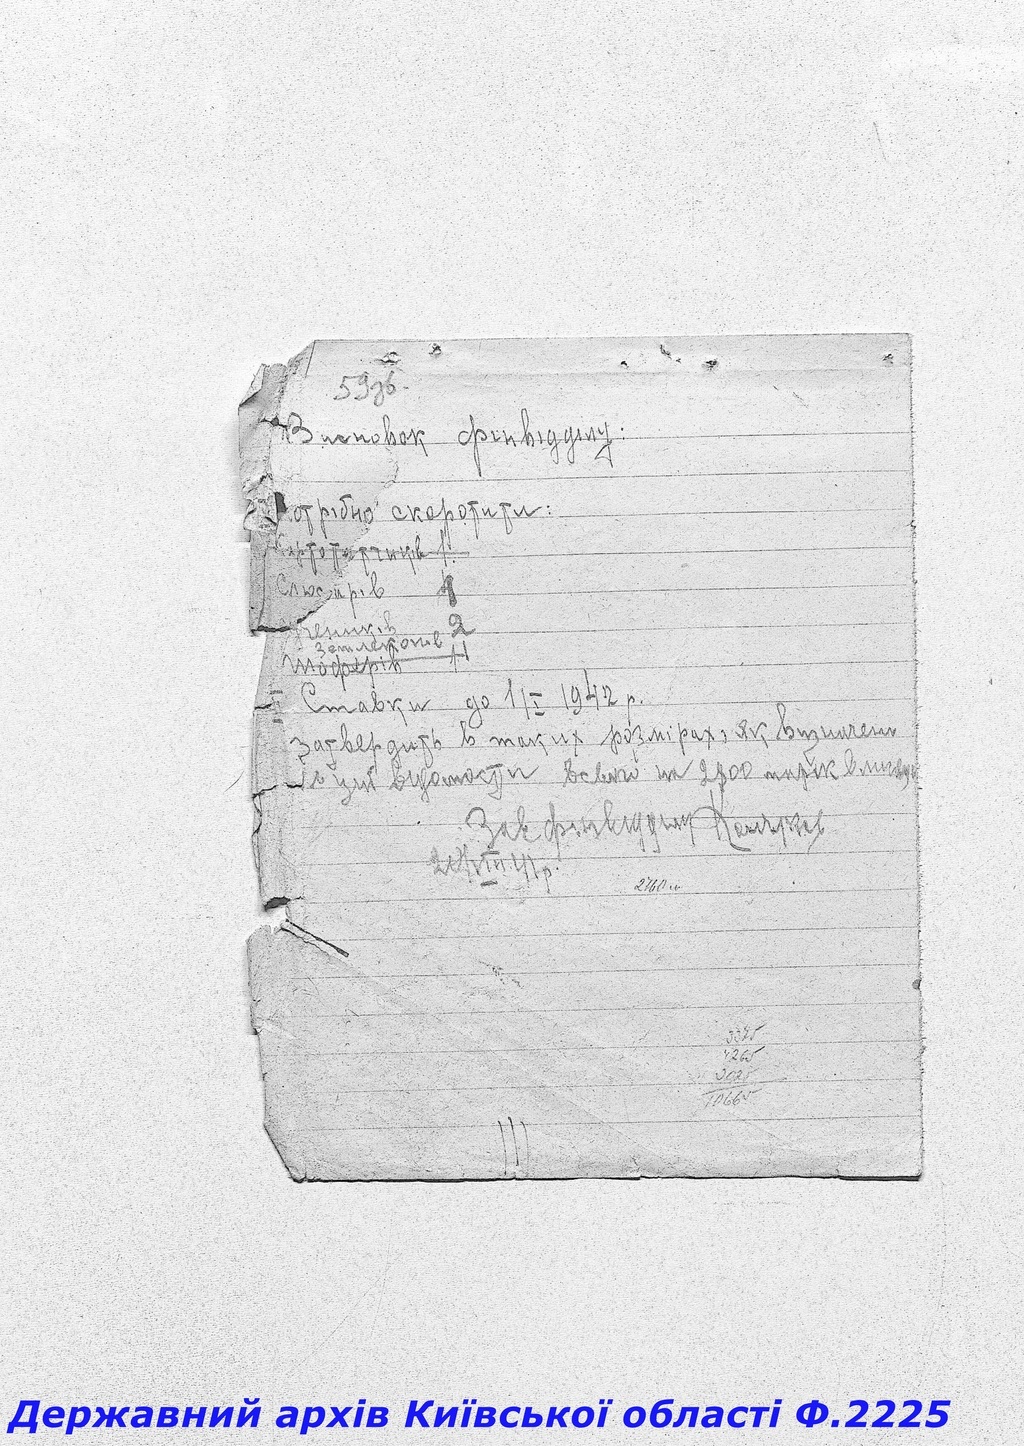 59зв.
Висновок фінвідділу:
Потрібно скоротити:
Картотетчиків 1
Слюсарів 1
Учеників 2
Землекопів
Шоферів 1
Ставки до 1/I 1942 р.
затвердить в таких розмірах, як визначені
в цій відомості всього на марок в місяць
Зав фінвідділу
VIII 41 р.
2760
3375
4265
3025
10665
Державний архів Київської області Ф.2225